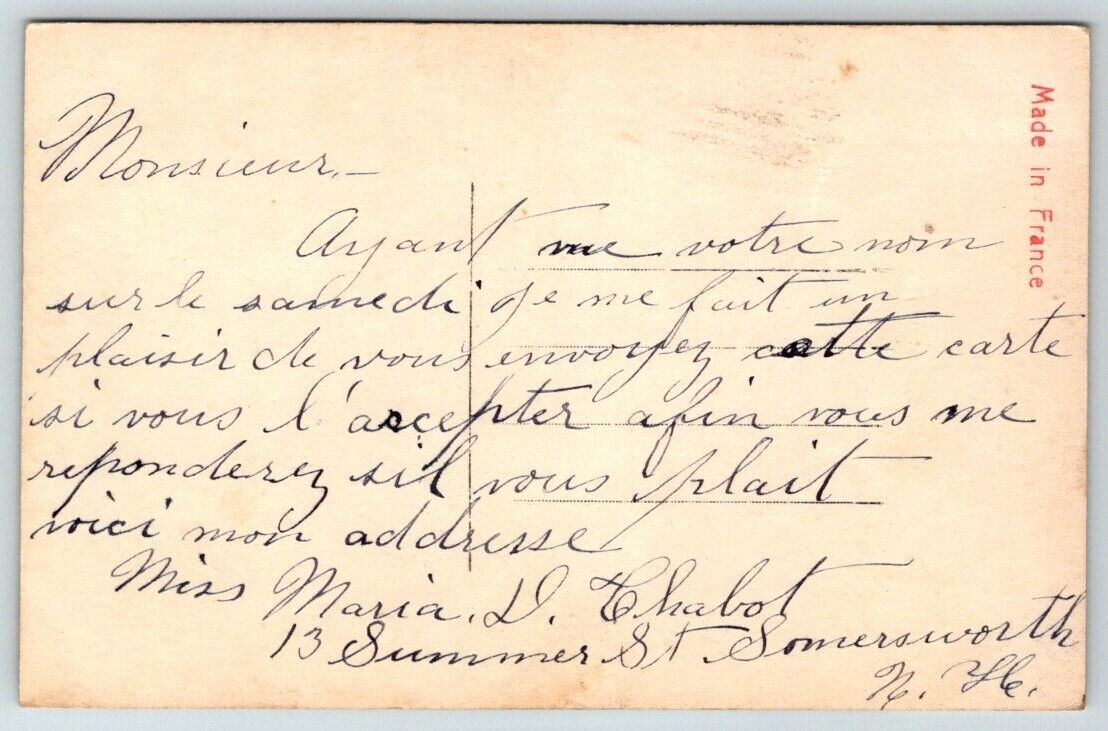 Monsieur,—
Ayant vue votre nom
sur le samedi je me fait un
plaisir de vous envoyez cette carte
si vous l'accepter afin vous me
reponderez sil vous plait
voici mon addresse
Miss Maria. D. Chabot
13 Summer St Somersworth
N. H.
Made in France